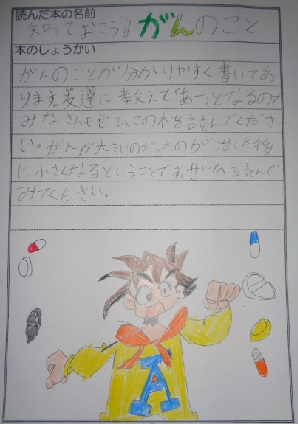 読んだ本の名前
知っておこう!がんのこと
本のしょうかい
がんのことが分かりやすく書いてあ
ります。友達に教えて「あーっ」となるので
みなさんもぜひこの本を読んでくださ
い。がんが大きいのだったのが治した後
に小さくなるということです。ぜひ読んで
みてください。
A